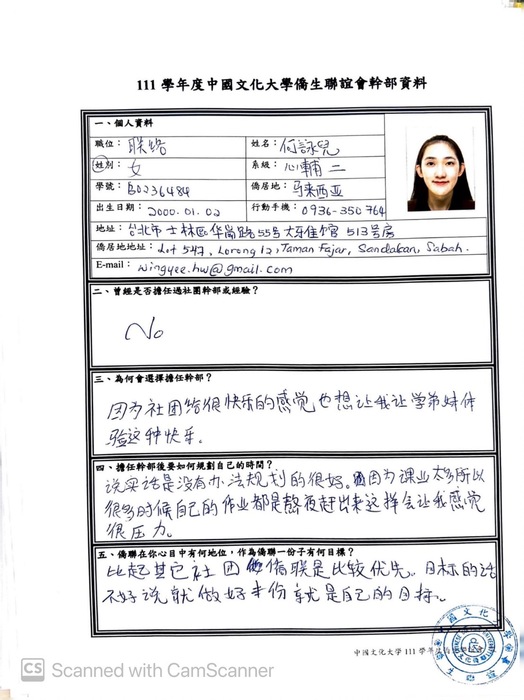 111 學年度中國文化大學僑生聯誼會幹部資料
一、個人資料
職位：联络
姓名：何詠兒
姓別：女
系級：心輔二
學號：B0236484
僑居地：马来西亚
出生日期：2000.01.02
行動手機：0936-350764
地址：台北市士林區华崗路55号大雅館513号房
僑居地地址：Lot 547, Lorong 12, Taman Fajar, Sandakan, Sabah.
E-mail：wingyee.hw@gmail.com
二、曾經是否擔任過社團幹部或經驗？
No
三、為何會選擇擔任幹部？
因为社团给很快乐的感觉也想让我让学弟妹体
验这种快乐。
四、擔任幹部後要如何規劃自己的時間？
说实话是没有办法规划的很好。因为课业太多所以
很多时候自己的作业都是熬夜赶出来这样会让我感觉
很压力。
五、僑聯在你心目中有何地位，作為僑聯一份子有何目標？
比起其它社团 侨联是比较优先。目标的话
不好说就做好本份就是自己的目标。
中國文化大學 111 學年度
CS Scanned with CamScanner